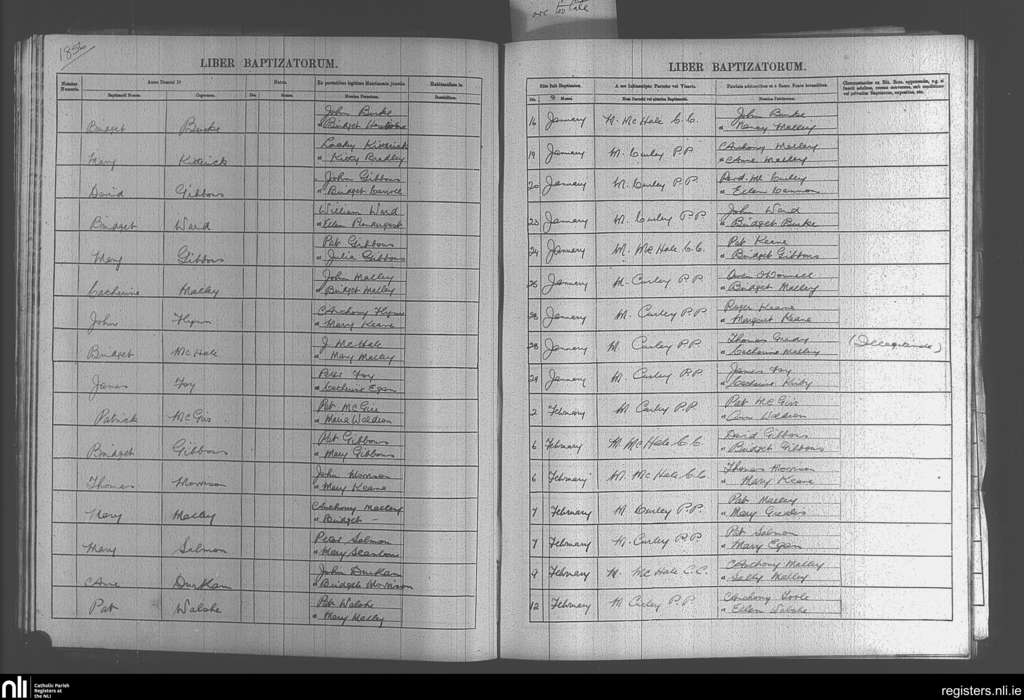 1856
LIBER BAPTIZATORUM.
Numerus
Anno Domini 18
Natus.
Ex parentibus legitimo Matrimonio junctis
Habitantibus in
Baptizatus Nomen.
Cognomen.
Die.
Mense.
Nomina Parentum.
Domicilium.
Bridget Burke
John Burke
" Bridget
Mary Kittrick
Kittrick
" Kitty Bradley
David Gibbons
John Gibbons
" Bridget Carroll
Bridget Ward
William Ward
" Ellen Prendergast
Mary Gibbons
Pat Gibbons
" Julia Gibbons
Catherine Malley
John Malley
" Bridget Malley
John Flynn
Anthony Flynn
" Mary Keane
Bridget McHale
J McHale
" Mary Malley
James Foy
Peter Foy
" Catherine Egan
Patrick McGirr
Pat McGirr
" Maria Waldron
Bridget Gibbons
Pat Gibbons
" Mary Gibbons
Thomas Morrison
John Morrison
" Mary Keane
Mary Malley
Anthony Malley
" Bridget –
Mary Salmon
Peter Salmon
" Mary Scanlon
Anne Durkan
John Durkan
" Bridget Morrison
Pat Walshe
Pat Walshe
" Mary Malley
LIBER BAPTIZATORUM.
Die fuit Baptizatus.
A me Infrascripto Parocho vel Vicario.
Patrinis adstantibus et e Sacro Fonte levantibus.
Die.
Mense.
Nomen Parochi vel alterius Baptizantis.
Nomina Patrinorum.
16 January M. McHale C.C.
John Burke
" Nancy Malley
19 January M. Curley P.P.
Anthony Malley
" Anne Malley
20 January M. Curley P.P.
Curley
" Ellen Cannon
23 January M. Curley P.P.
John Ward
" Bridget Burke
24 January M. McHale C.C.
Pat Keane
" Bridget Gibbons
26 January M. Curley P.P.
Owen O'Donnell
" Bridget Malley
28 January M. Curley P.P.
Roger Keane
" Margaret Keane
28 January M. Curley P.P.
Thomas Grady
" Catherine Malley
29 January M. Curley P.P.
James Foy
" Catherine Kirby
2 February M. Curley P.P.
Pat McGirr
" Ann Waldron
6 February M. McHale C.C.
David Gibbons
" Bridget Gibbons
6 February M. McHale C.C.
Thomas Morrison
" Mary Keane
7 February M. Curley P.P.
Pat Malley
" Mary
7 February M. Curley P.P.
Pat Salmon
" Mary Egan
9 February M. McHale C.C.
Anthony Malley
" Sally Malley
12 February M. Curley P.P.
Anthony Toole
" Ellen Walshe
nli
Catholic Parish
Registers at
the NLI
registers.nli.ie